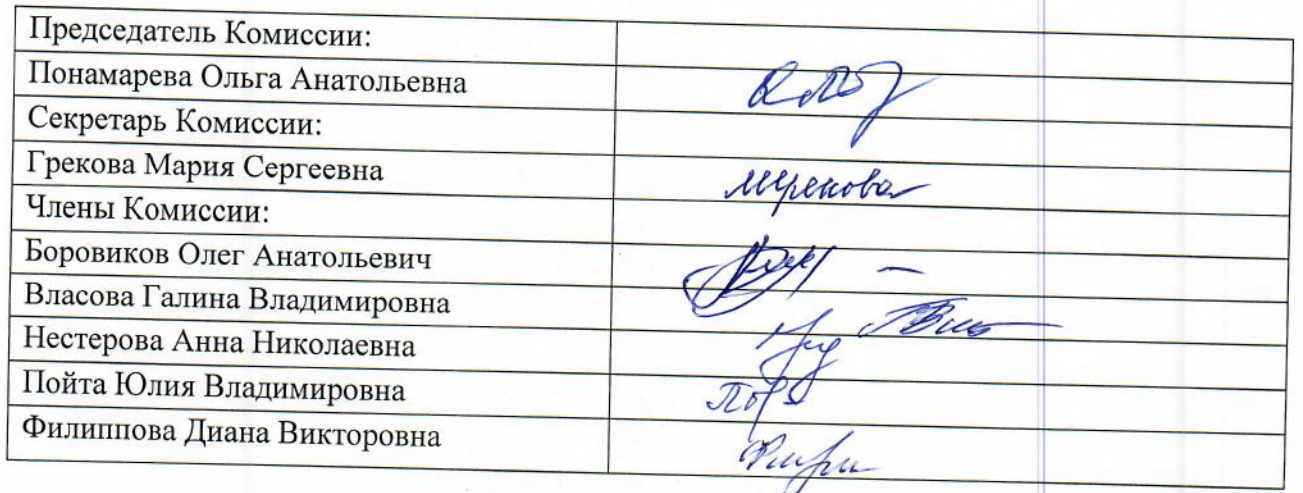 Председатель Комиссии:
Понамарева Ольга Анатольевна
Секретарь Комиссии:
Грекова Мария Сергеевна
Члены Комиссии:
Боровиков Олег Анатольевич
Власова Галина Владимировна
Нестерова Анна Николаевна
Пойта Юлия Владимировна
Филиппова Диана Викторовна